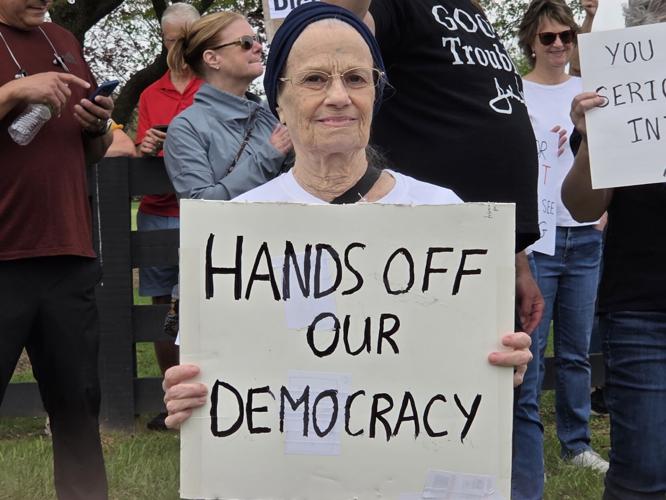 HANDS OFF
OUR
DEMOCRACY
GOOD
Trouble
YOU
SERIO
IN
SEE